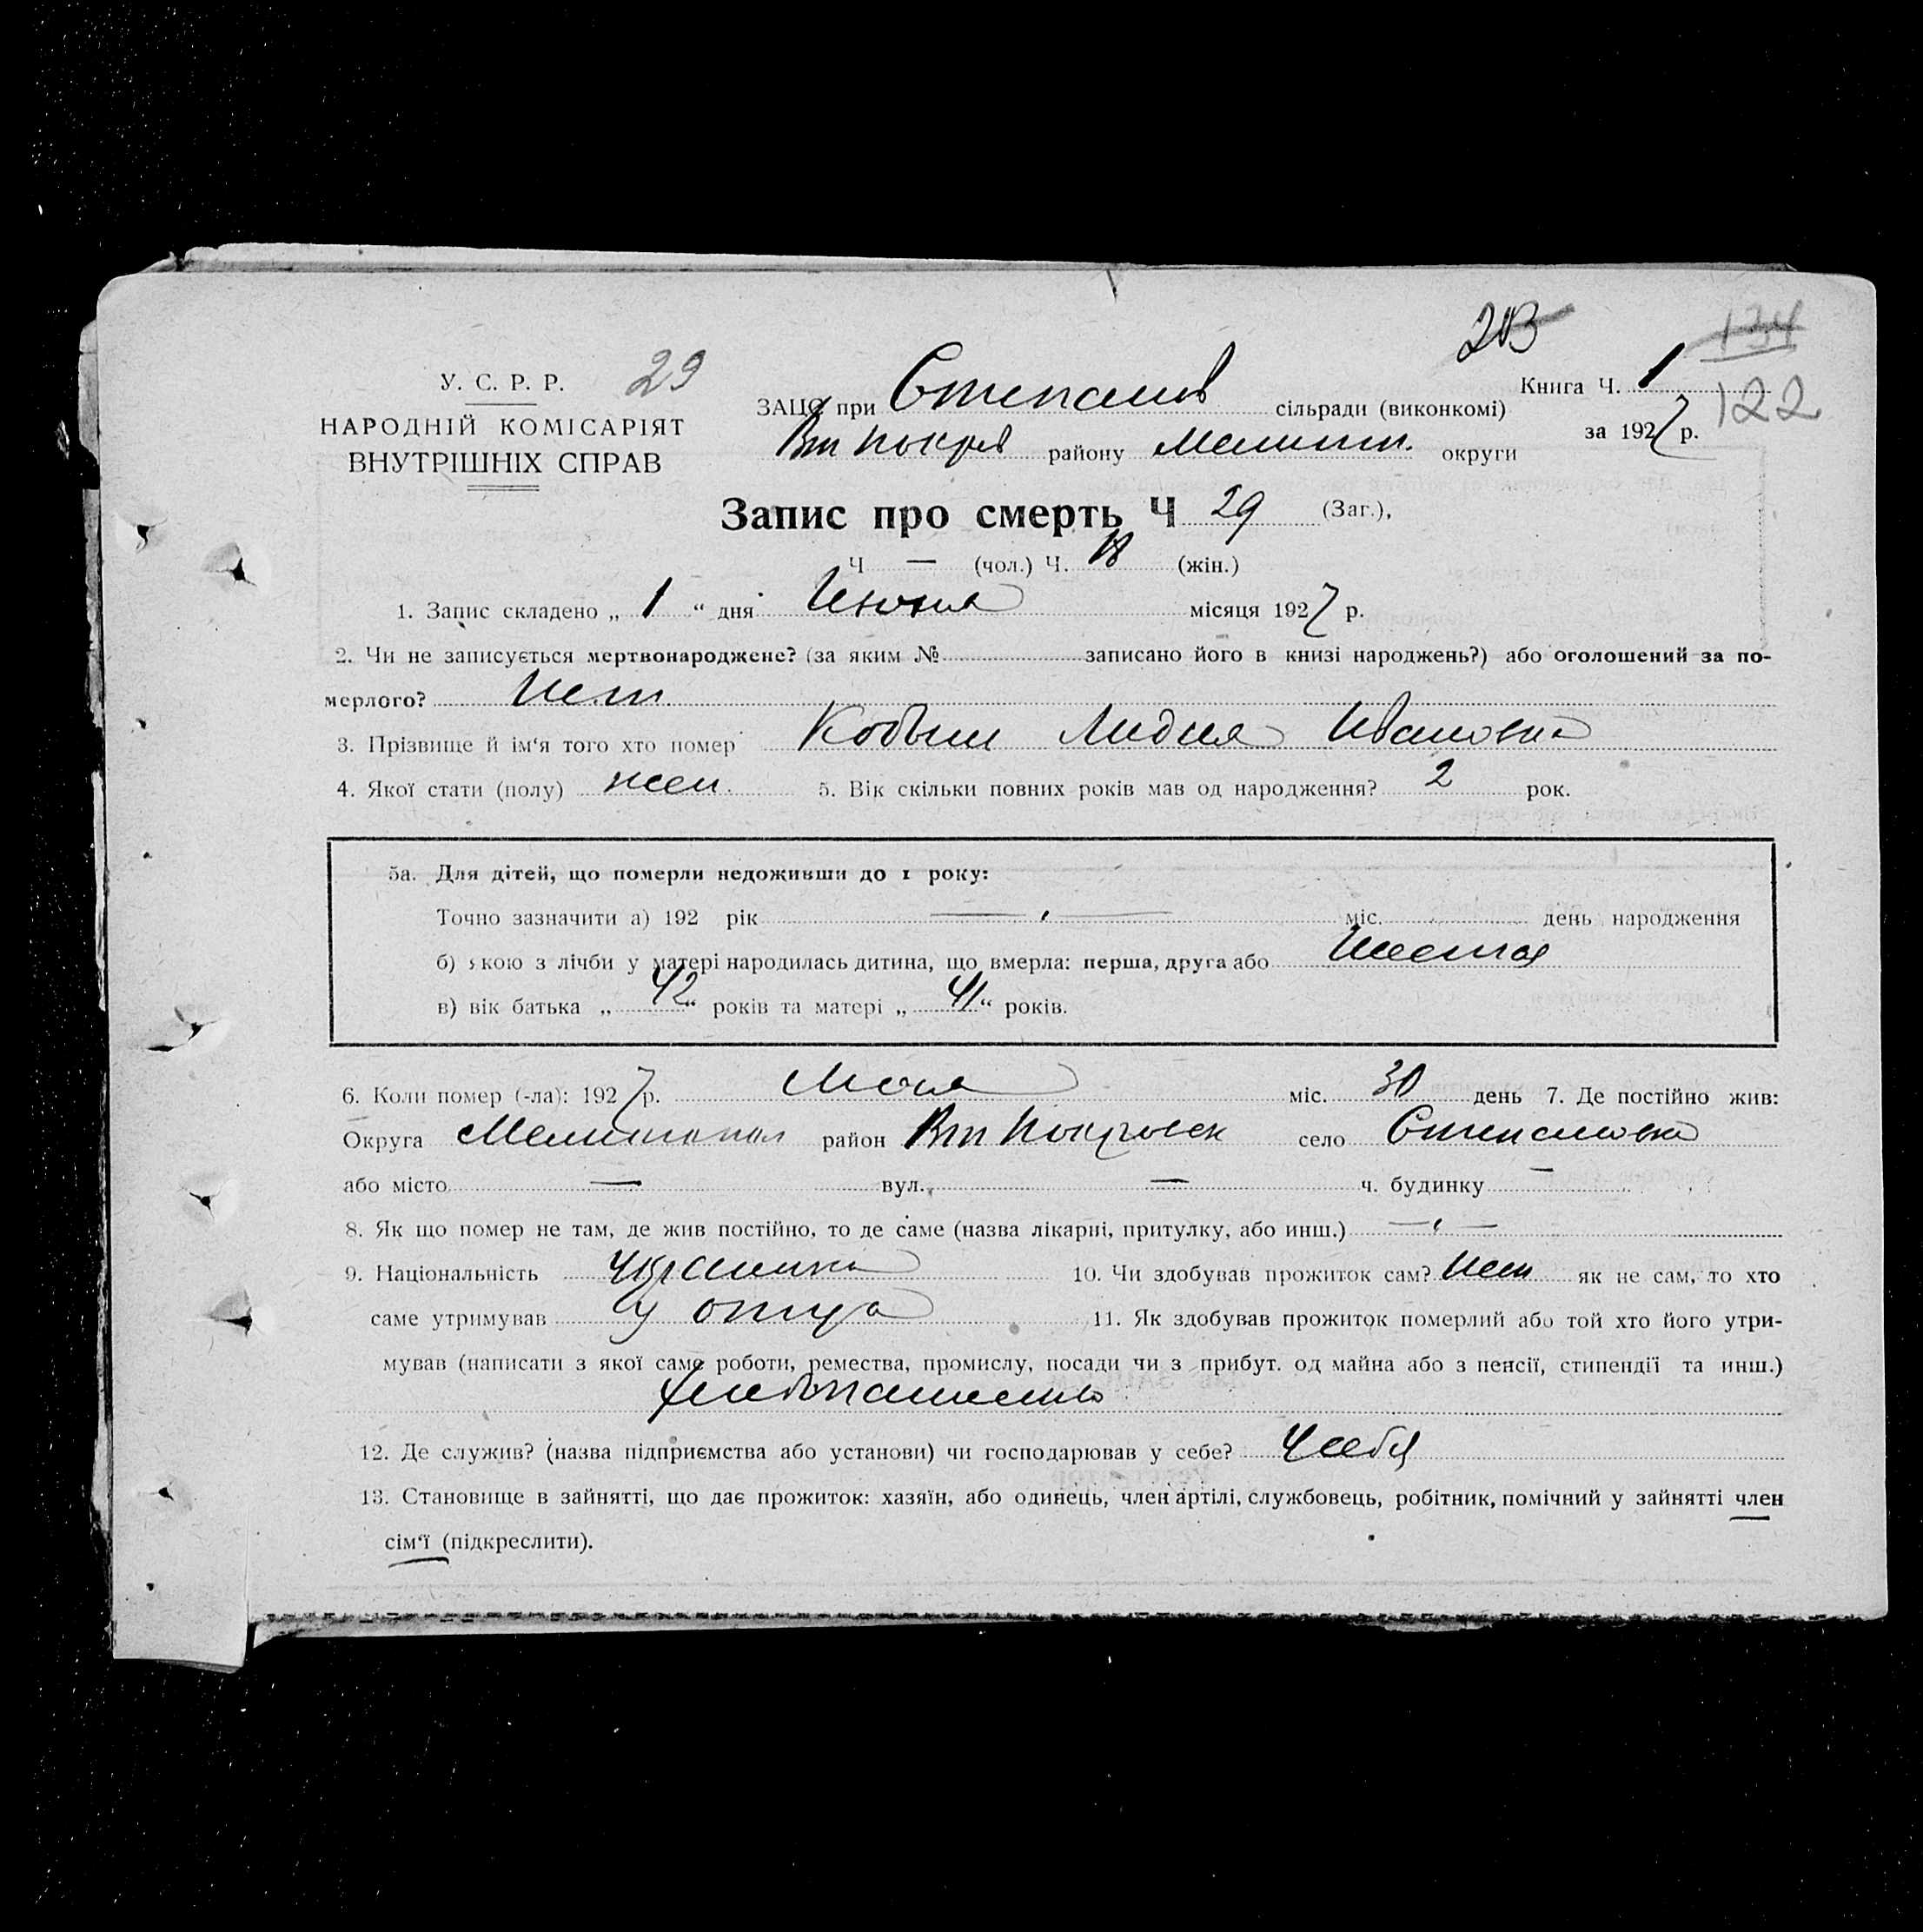 2В 134
У. С. Р. Р. 29 ЗАЦС при Степанов сільради (виконкомі) Книга Ч. 1 122
НАРОДНІЙ КОМІСАРІЯТ Вт Покров району Мелитп. округи за 1927 р.
ВНУТРІШНІХ СПРАВ
Запис про смерть Ч 29 (Заг.),
Ч — (чол.) Ч. 18 (жін.)
1. Запис складено „ 1 “ дня Июня місяця 1927 р.
2. Чи не записується мертвонароджене? (за яким № записано його в книзі народжень?) або оголошений за по-
мерлого? Нет
3. Прізвище й ім‘я того хто помер Лидия Ивановна
4. Якої стати (полу) жен. 5. Вік скільки повних років мав од народження? 2 рок.
5а. Для дітей, що померли недоживши до 1 року:
Точно зазначити а) 192 рік — „ — міс. день народження
б) якою з лічби у матері народилась дитина, що вмерла: перша, друга або Шестая
в) вік батька „ 42 “ років та матері „ 41 “ років.
6. Коли помер (-ла): 1927 р. Мая міс. 30 день 7. Де постійно жив:
Округа Мелитопол район Вт Покровск село Степановка
або місто — вул. — ч. будинку —
8. Як що помер не там, де жив постійно, то де саме (назва лікарні, притулку, або инш.) — „ —
9. Національність Украинка 10. Чи здобував прожиток сам? Нет як не сам, то хто
саме утримував у отца 11. Як здобував прожиток померлий або той хто його утри-
мував (написати з якої саме роботи, ремества, промислу, посади чи з прибут. од майна або з пенсії, стипендії та инш.)
хлебопашество
12. Де служив? (назва підприємства або установи) чи господарював у себе? У себя
13. Становище в зайнятті, що дає прожиток: хазяїн, або одинець, член артілі, службовець, робітник, помічний у зайнятті член
сім‘ї (підкреслити).